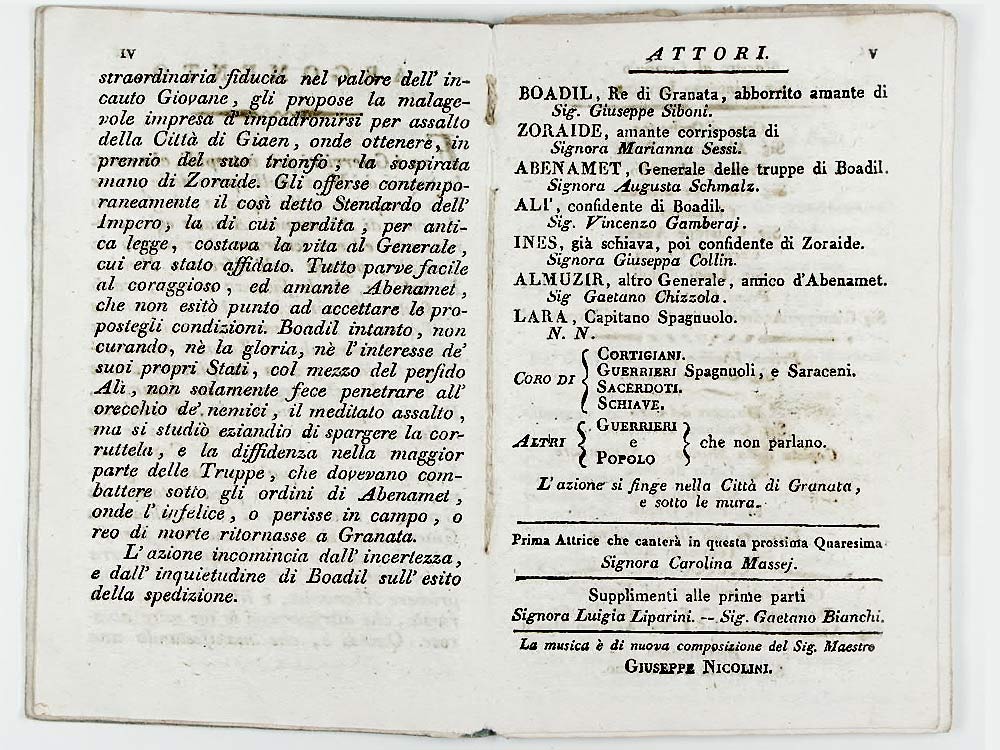 IV
straordinaria fiducia nel valore dell' in-
cauto Giovane, gli propose la malage-
vole impresa d'impadronirsi per assalto
della Città di Giaen, onde ottenere, in
premiò del suo trionfò, la sospirata
mano di Zoraide. Gli offerse contempo-
raneamente il così detto Stendardo dell'
Impero, la di cui perdita, per anti-
ca legge, costava la vita al Generale,
cui era stato affidato. Tutto parve facile
al coraggioso, ed amante Abenamet,
che non esitò punto ad accettare le pro-
postegli condizioni. Boadil intanto, non
curando, nè la gloria, nè l'interesse de'
suoi propri Stati, col mezzo del perfido
Alì, non solamente fece penetrare all'
orecchio de' nemici, il meditato assalto,
ma si studiò eziandio di spargere la cor-
ruttela, e la diffidenza nella maggior
parte delle Truppe, che dovevano com-
battere sotto gli ordini di Abenamet,
onde l'infelice, o perisse in campo, o
reo di morte ritornasse a Granata.
L'azione incomincia dall'incertezza,
e dall'inquietudine di Boadil sull'esito
della spedizione.
ATTORI. V
BOADIL, Re di Granata, abborrito amante di
Sig. Giuseppe Siboni.
ZORAIDE, amante corrisposta di
Signora Marianna Sessi.
ABENAMET, Generale delle truppe di Boadil.
Signora Augusta Schmalz.
ALI', confidente di Boadil.
Sig. Vincenzo Gamberaj.
INES, già schiava, poi confidente di Zoraide.
Signora Giuseppa Collin.
ALMUZIR, altro Generale, amico d'Abenamet.
Sig Gaetano Chizzola.
LARA, Capitano Spagnuolo.
N. N.
CORO DI { CORTIGIANI.
GUERRIERI Spagnuoli, e Saraceni.
SACERDOTI.
SCHIAVE.
ALTRI { GUERRIERI
e } che non parlano.
POPOLO
L'azione si finge nella Città di Granata,
e sotto le mura.
Prima Attrice che canterà in questa prossima Quaresima
Signora Carolina Massej.
Supplimenti alle prime parti
Signora Luigia Liparini. -- Sig. Gaetano Bianchi.
La musica è di nuova composizione del Sig. Maestro
GIUSEPPE NICOLINI.